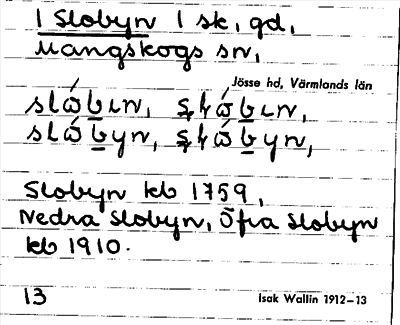 1 Slobyn 1 sk, gd,
Mangskogs sn,
Jösse hd, Värmlands län
Slobyn kb 1759,
Nedra Slobyn, Öfra Slobyn
kb 1910.
13
Isak Wallin 1912–13